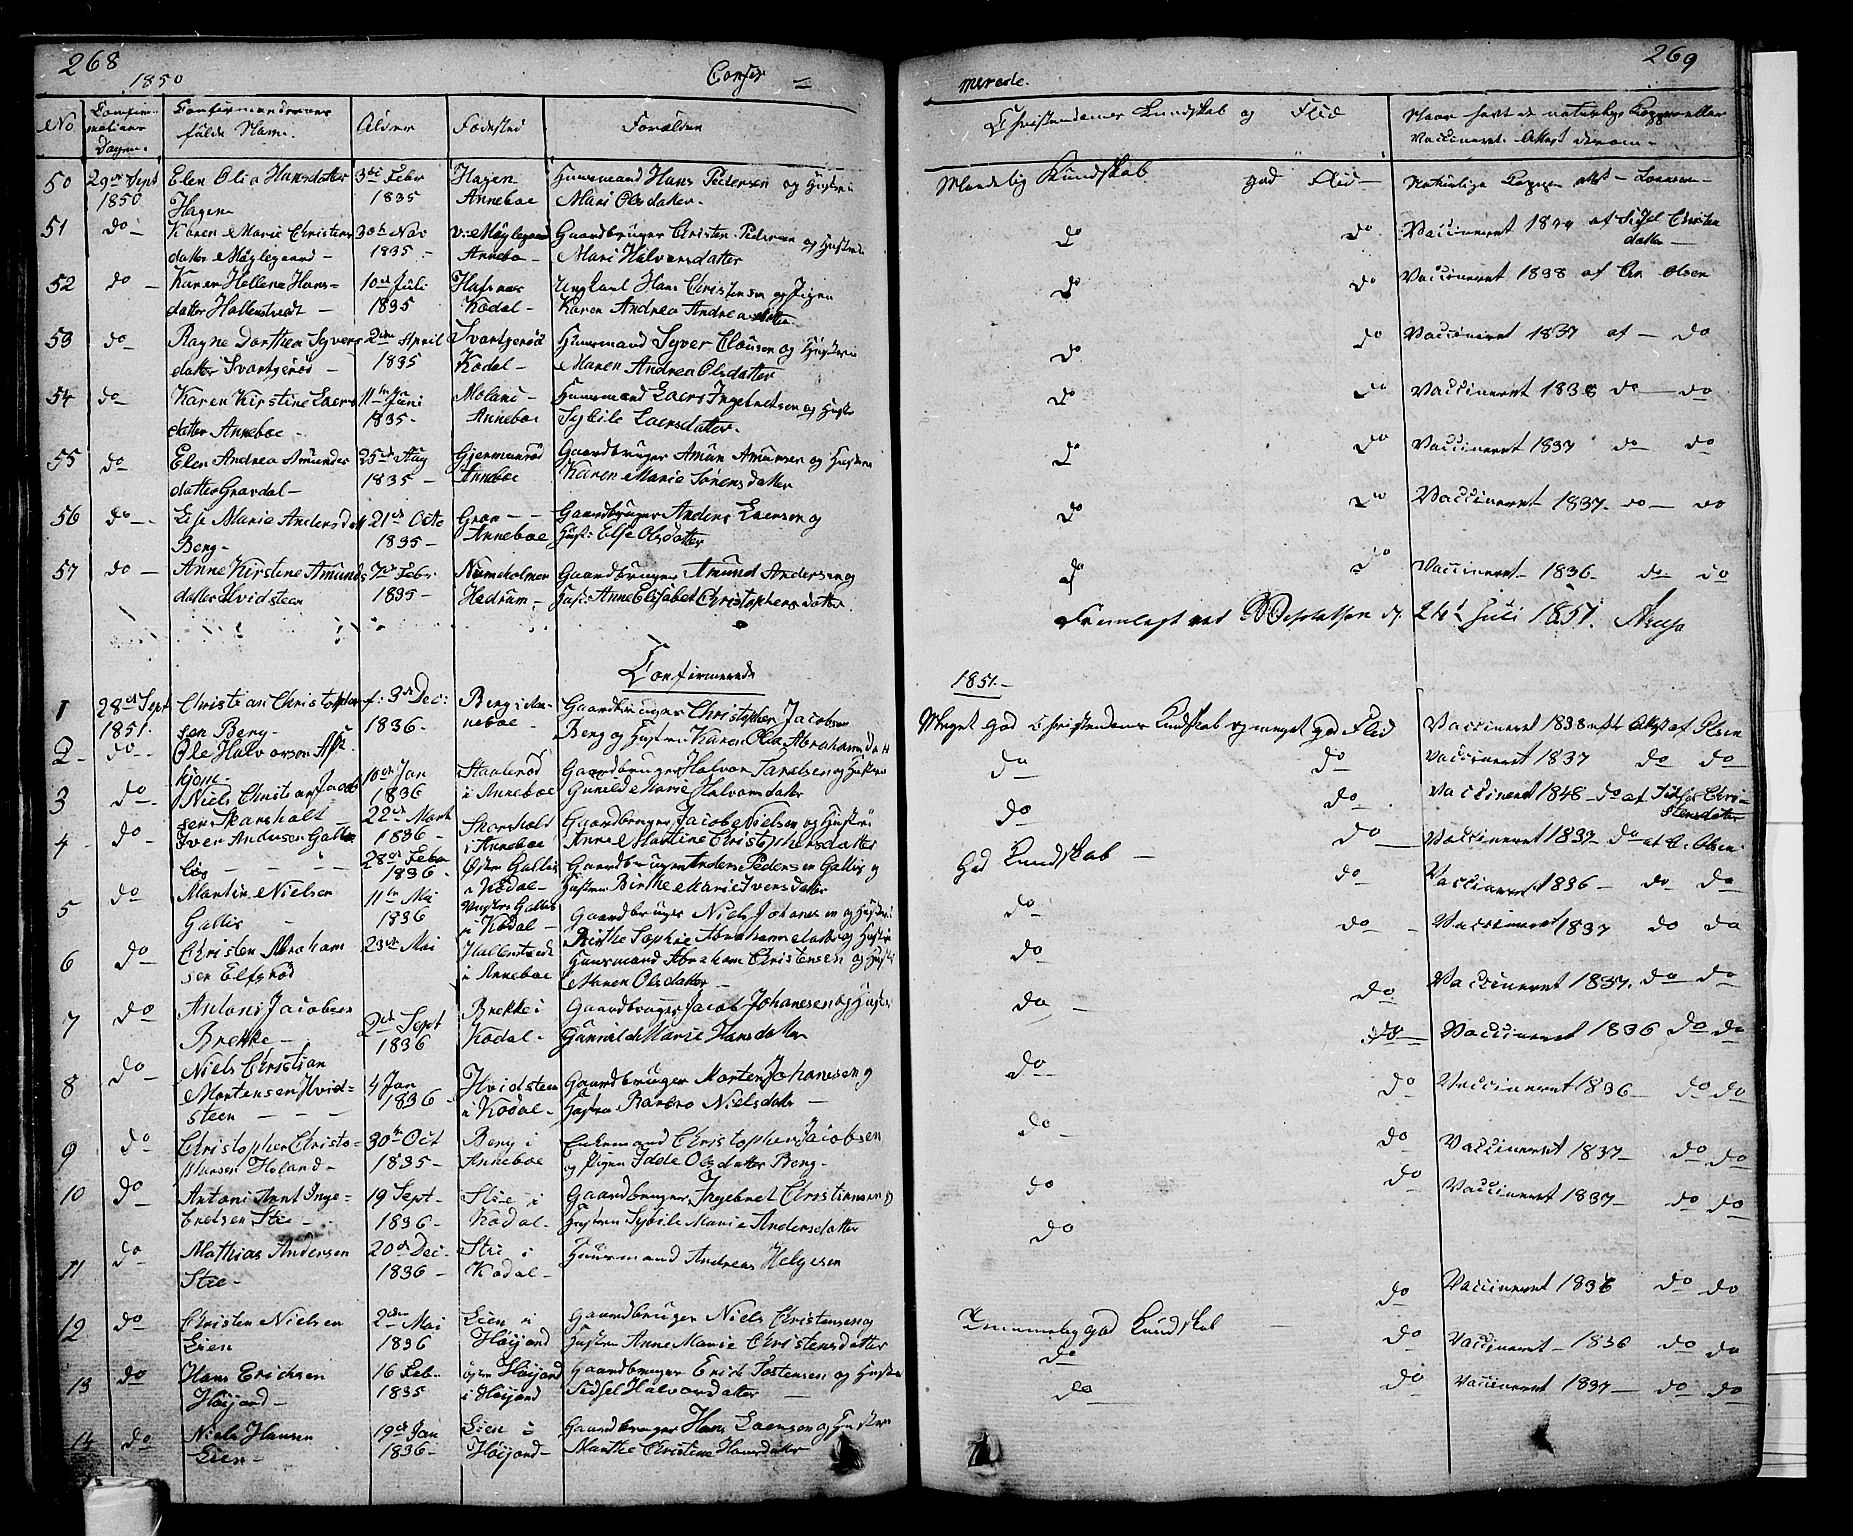 268
1850
Confir
No
Confir-
mations
Dagen.
Confirmandernes
fulde Navn.
Alder
Fødested
Forældre
50 29de Sept Elen Olia Hansdatter 3die Febr Hagen Huusmand Hans Pedersen og Hustru
1850 Hagen 1835 Anneboe Mari Olsdatter
51 do Karen Marie Christens 30te Nov v: Møglegaard Gaardbruger Christen Pedersen og Hustru
datter Møglegaard 1835 Anneboe Mari Halvorsdatter
52 do Karen Hellene Hans- 10de Juli Hafsnæs Ungkarl Hans Christensen og Pigen
datter Hallenstvedt 1835 Kodal Karen Andrea Andreasdatter
53 do Ragne Dorthea Syvers 2den April Svartgerød Huusmand Syver Clausen og Hustru
datter Svartgerød 1835 Kodal Maren Andrea Olsdatter
54 do Karen Kirstine Laers 11te Juni Molani Huusmand Laers Ingebretsen og Hustr
datter Anneboe 1835 Anneboe Sybile Laersdatter
55 do Elen Andrea Amunds 25de Aug Gjermunrød Gaardbruger Amun Amunsen og Hustru
datter Gravdal 1835 Anneboe Karen Marie Sørensdatter
56 do Lise Marie Andersdatt 21de Octo Gran Gaardbruger Anders Laersen og
Berg 1835 Anneboe Hust: Else Olsdatter
57 do Anne Kirstine Amunds 7de Febr Numeholmen Gaardbruger Amund Andersen og
datter Hvidsteen 1835 Hedrum Hust: Anne Elisabet Christophersdatter
Confirmerede
1 28de Sept Christian Christopher f: 3de Dec: Berg i An- Gaardbruger Christopher Jacobsen
1851. sen Berg 1836 neboe Berg og Hustru Karen Olia Abrahamsdatt
2 do Ole Halvorsen Ask
kjem 10de Jan Staalerød Gaardbruger Halvor Tarelsen og Hustru
3 do Niels Christian Jacob 1836 i Anneboe Gunilde Marie Halvorsdatter
sen Skarsholt 22de Marts Skarsholt Gaardbruger Jacob Nielsen og Hustru
4 do Iver Andersen Galle 1836 i Anneboe Anne Martine Christophersdatter
løs 28de Febr Østre Gallis Gaardbruger Anders Pedersen Gallis og
1836 i Kodal Hustru Birthe Marie Iversdatter
5 do Martin Nielsen 11te Mai Vestre Gallis Gaardbruger Niels Johansen og Hustru
Gallis 1836 i Kodal Birthe Sophie Abrahamsdatter
6 do Christen Abraham 23de Mai Hallenstvedt Huusmand Abraham Christensen og Hustru
sen Elfsrød i Anneboe Maren Olsdatter
7 do Antoni Jacobsen 2de Sept Brekke i Gaardbruger Jacob Johanesen og Hustru
Brekke 1836 Kodal Gunnilde Marie Hansdatter
8 do Niels Christian
Mortensen Hvid- 4 Jan Hvidsteen Gaardbruger Morten Johanesen og
steen 1836 i Kodal Hustru Barbro Nielsdatter
9 do Christopher Christo- 30te Oct Berg i Enkemand Christopher Jacobsen
phersen Høland 1835 Anneboe og Pigen Idde Olsdatter Berg
10 do Antoni Arnt Inge- 19 Sept Stie i Gaardbruger Ingebret Christiansen og
bretsen Stie 1836 Kodal Hustru Sybile Marie Andersdatter
11 do Mathias Andersen 20de Dec Stie i Huusmand Andreas Helgesen
Stie 1836 Kodal
12 do Christen Nielsen 2den Mai Lien i Gaardbruger Niels Christensen og
Lien 1836 Høijord Hustru Anne Marie Christensdatter
13 do Hans Erichsen 16 Feb. østre Høijord Gaardbruger Erich Tostensen og Hustru
Høijord 1835 i Høijord Sidsel Halvorsdatter
14 do Niels Hansen 19de Jan Lien i Gaardbruger Hans Laersen og Hustru
Lien 1836 Høijord Marthe Christine Hansdatter
269
merede.
Christendoms Kundskab og Flid
Naar havt de naturlige Kopper eller
Vaccineret. Attest derom
Maadelig Kundskab god Flid Naturlige Kopper
do do Vaccineret af Sidsel Christen
datter
do do Vaccineret 1838 af Chr Olsen
do do Vaccineret 1837 af do
do do Vaccineret 1836 do do
do do Vaccineret 1837 do do
do do Vaccineret 1837 do do
do do Vaccineret 1836 do do
Fremlagt ved Visitatsen d. 24 Juli 1851.
1851.
Meget god Christendoms Kundskab og meget god Flid Vaccineret 1838 eft: Attest af Olsen
do do Vaccineret 1837 do do
do do Vaccineret 1848 do af Sidsel Chri-
stensdatter
God Kundskab do Vaccineret 1837 do af C. Olsen
do do Vaccineret 1836 do do
do do Vaccineret 1837 do do
do do Vaccineret 1837. do do
do do Vaccineret 1836 do do
do do Vaccineret 1836 do do
do do Vaccineret 1837 do do
do do Vaccineret 1837 do do
do Vaccineret 1836 do do
Temmelig god Kundskab do Vaccineret 1836 do do
do do Vaccineret 1837 do do
do